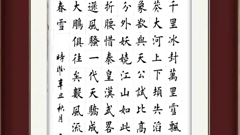 千里冰封萬里雪飄
莽大河上下頓失滔
象欲與天公試比高
分外妖嬈江山如此
折腰惜秦皇漢武略
遜風騷一代天驕成
大鵰俱往矣數風流
春雪 時 辛丑秋月